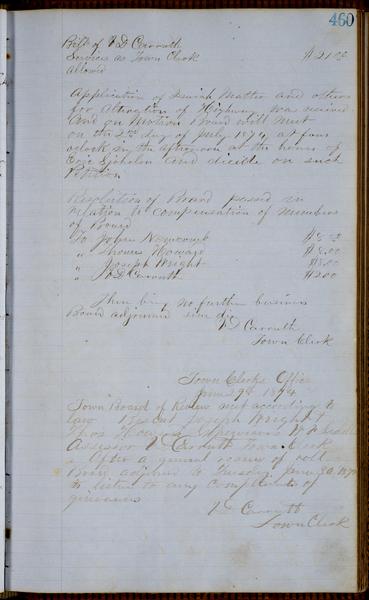 460
Bill of V D Carruth
Services as Town Clerk $21
allowed
Application of Matter and others
for Alteration of Highway was received
and on Motion Board will meet
on the 2nd day of July 1874, at four
oclock in the afternoon at the house of
and decide on such
Petition
Resolution of Board passed in
relation to compensation of members
of Board
To
" Thomas Howard $8.00
" Joseph Wright
" V D Carruth
There being no further business
Board adjourned sine die
V D Carruth
Town Clerk
Town Clerks Office
June 29th 1874
Town Board of Review met according to
law Present Joseph Wright
Thos Howard
Assessor V D Carruth Town Clerk
After a general of roll
Board adjourned to Tuesday June 30 187
to listen to any complaints of
grievances
V D Carruth
Town Clerk